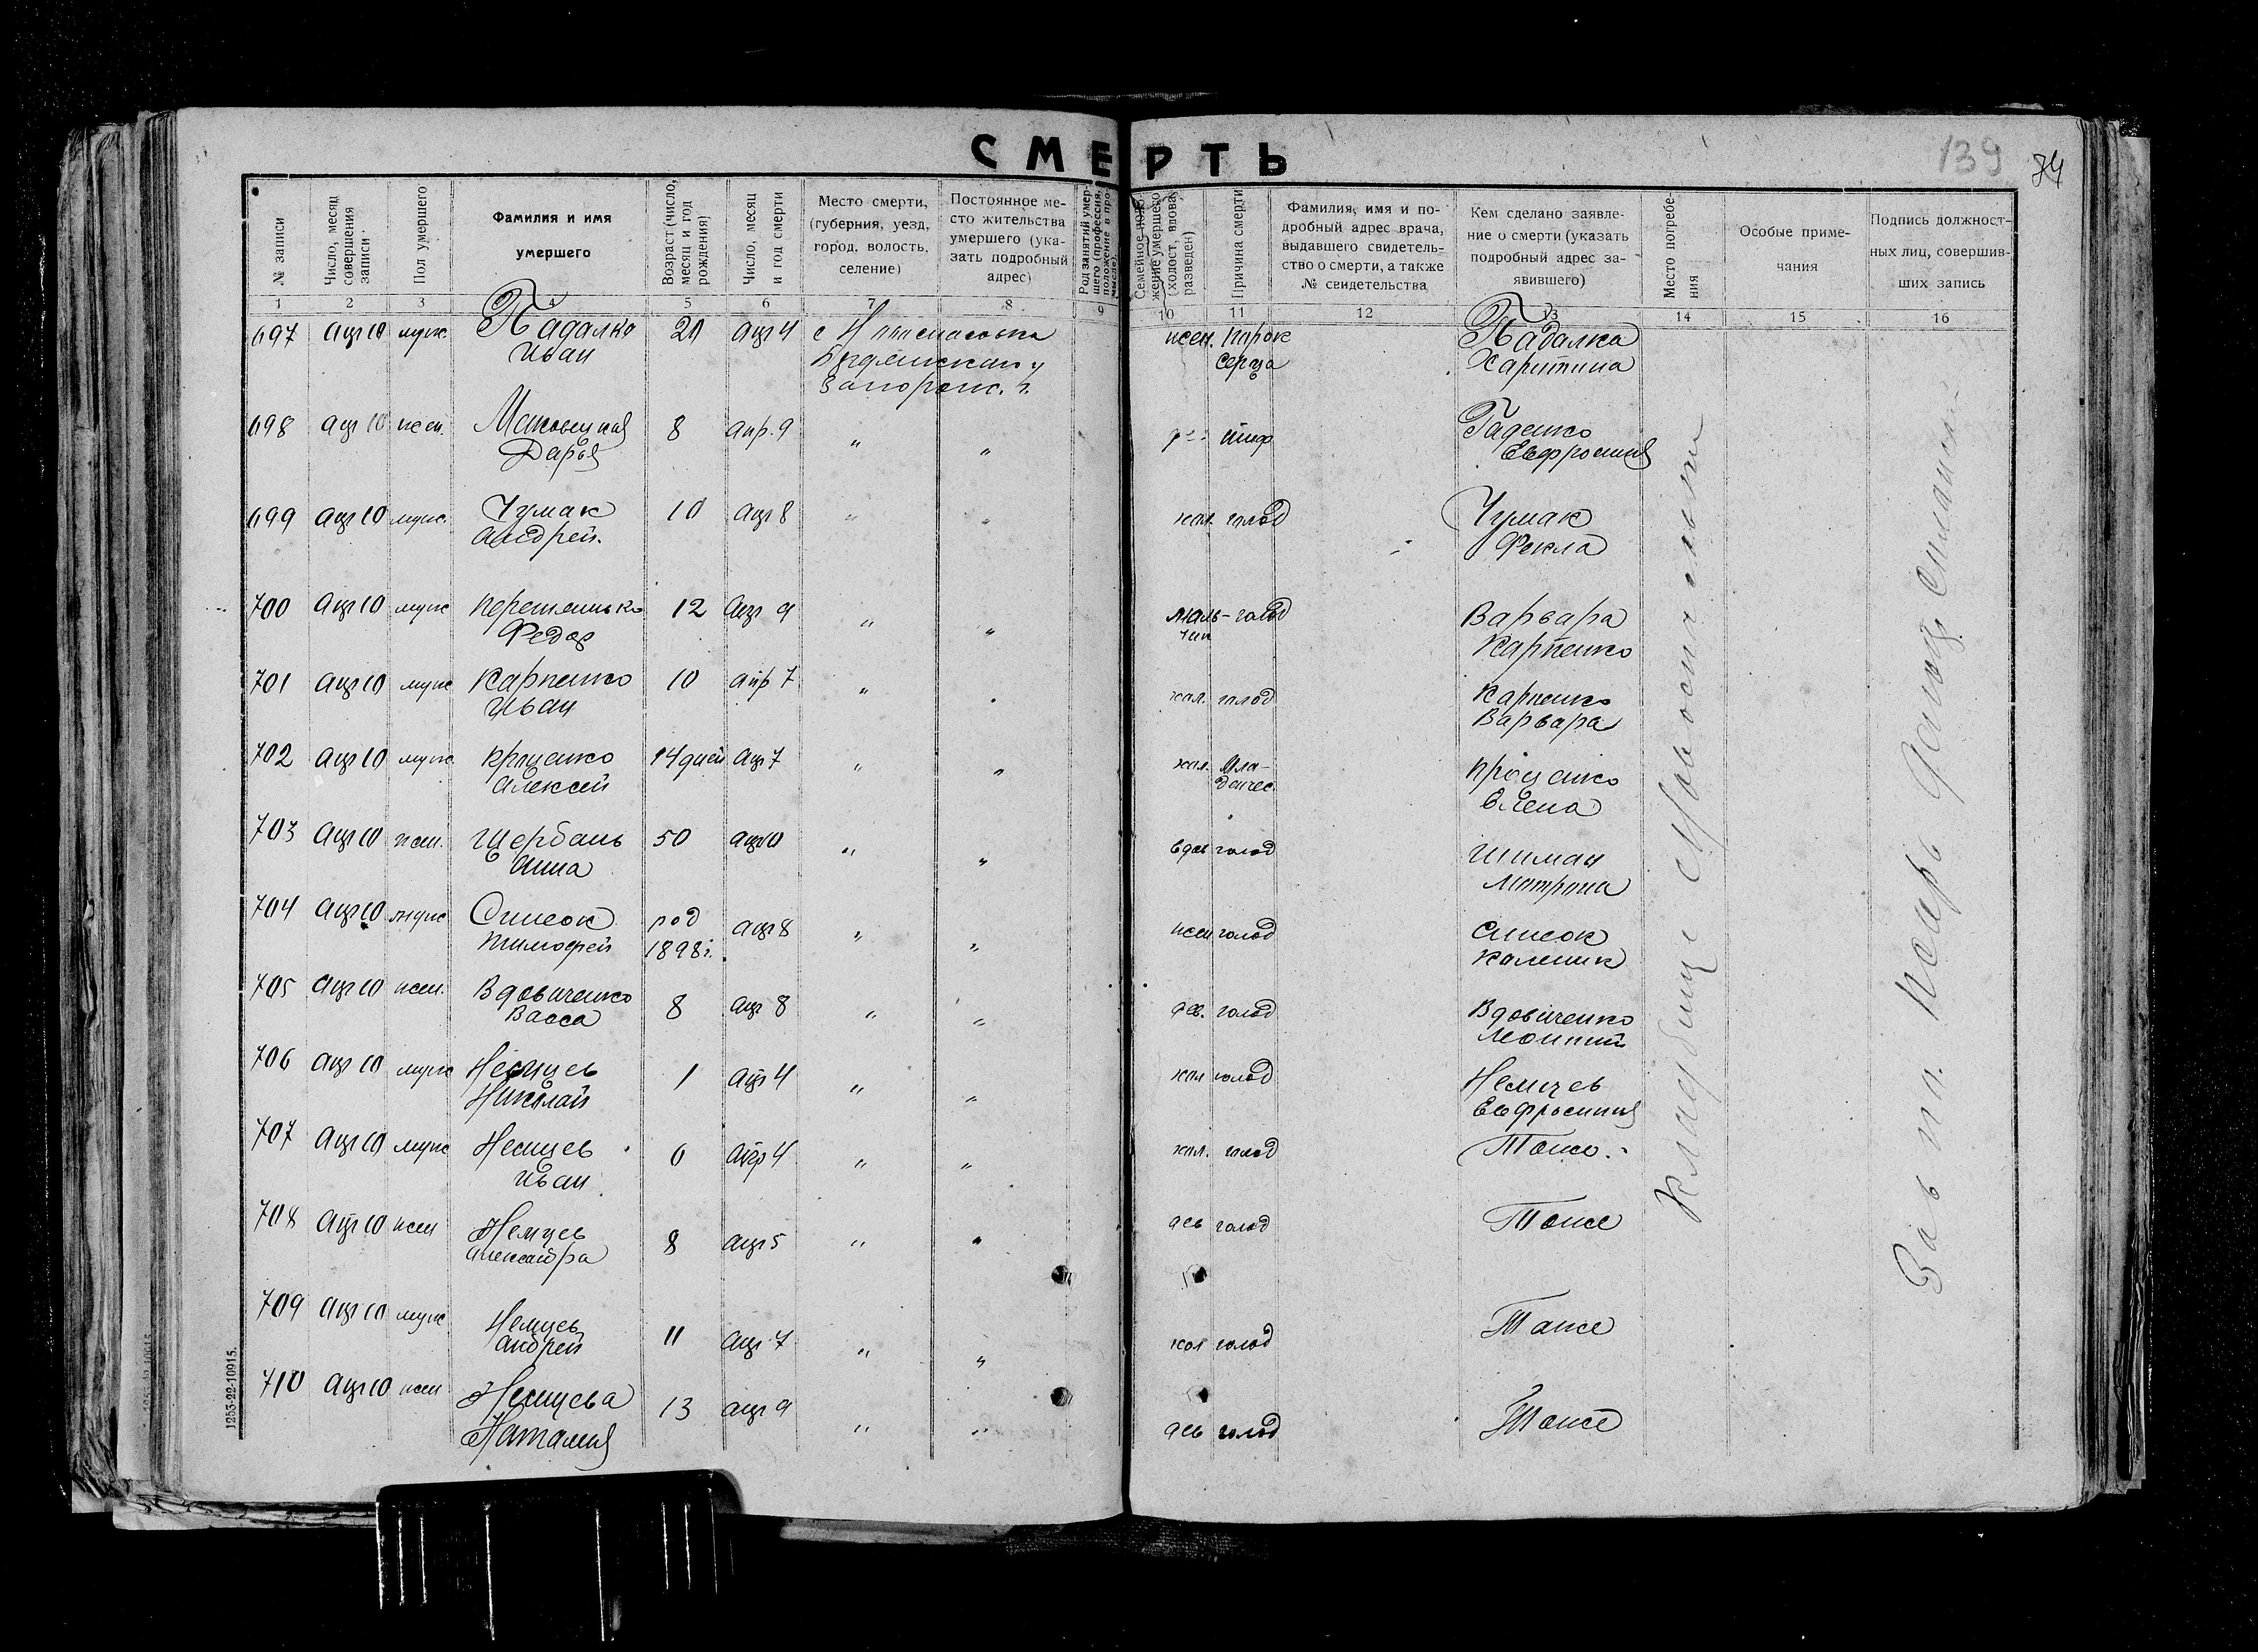 СМЕРТЬ
139
№ записи
Число, месяц совершения записи
Пол умершего
Фамилия и имя умершего
Возраст (число, месяц и год рождения)
Число, месяц и год смерти
Место смерти, (губерния, уезд, город, волость, селение)
Постоянное место жительства умершего (указать подробный адрес)
Род занятий умершего (профессия, положение в промысле)
Семейное положение умершего (холост, вдова, разведен)
Причина смерти
Фамилия, имя и подробный адрес врача, выдавшего свидетельство о смерти, а также № свидетельства
Кем сделано заявление о смерти (указать подробный адрес заявившего)
Место погребения
Особые примечания
Подпись должностных лиц, совершивших запись
1 2 3 4 5 6 7 8 9 10 11 12 13 14 15 16
697 апр 10 муж. Падалка 21 апр 4 с жен. Порок Падалка
Иван Серца Харитина
Запорож. г.
698 апр 10 жен. 8 апр. 9 " " тиф Гаденко
Дарья Евфросиния
699 апр 10 муж. Чумак 10 апр 8 " " хол. голод Чумак
Андрей. Фекла
700 апр 10 муж 12 апр 9 " " маль- голод Варвара
Федор чик Карпенко
701 апр 10 муж Карпенко 10 апр 7 " " хол. голод Карпенко
Иван Варвара
702 апр 10 муж Проценко 14 дней апр 7 " " хол. Мла- Проценко
Алексей денчес. Елена
703 апр 10 жен. Щербань 50 апр 10 " " вдов голод Шиман
Анна Матрона
704 апр 10 муж род апр 8 " " жен голод
Тимофей 1898 г. Каленик
705 апр 10 жен. Вдовиченко 8 апр 8 " " дев. голод Вдовиченко
Васса Леонтий
706 апр 10 муж Немцев 1 апр 4 " " хол голод Немцев
Николай Евфросиния
707 апр 10 муж Немцев 6 апр 4 " " хол. голод Тоже
Иван
708 апр 10 жен Немцев 8 апр 5 " " дев голод Тоже
Александра
709 апр 10 муж Немцев 11 апр 7 " " хол голод Тоже
Андрей
710 апр 10 жен Немцева 13 апр 9 " " дев голод Тоже
Наталия
Кладбище
Зав
1253-22-10915.